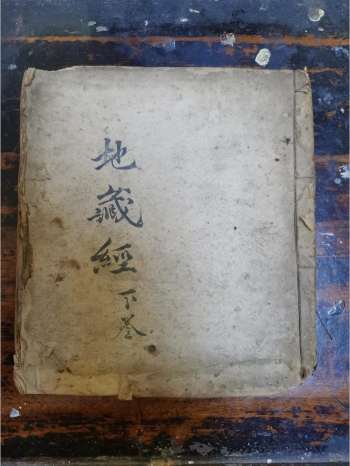 地藏經下卷